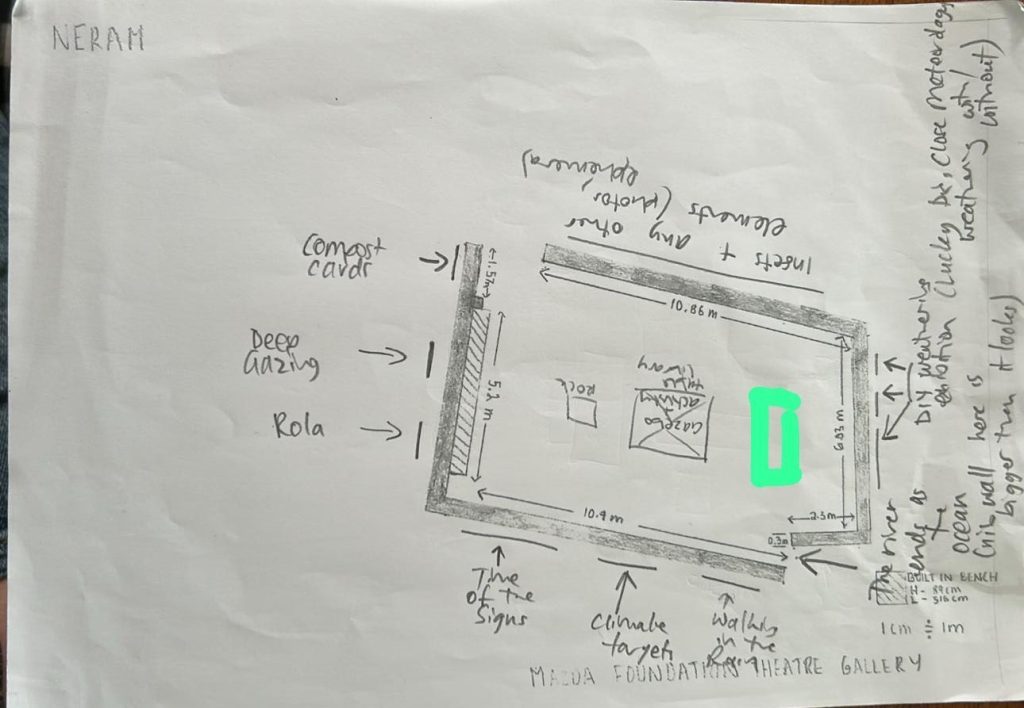 NERAM
Compost
cards
Deep
Gazing
Rola
Insects + any other
elements (photos,
ephemera)
1.57m
10.86 m
5.2 m
6.03m
10.4 m
2.3m
0.3m
ROCK
Gazebo
library
Time
of the
Signs
Climate
targets
Walking
in the
The river
ends as
the
ocean
DIY weathering
station (Clucky Dx, Close
weathering with/
without)
(nib wall here is
bigger than it looks)
BUILT IN BENCH
H - 89cm
L - 516cm
1cm ÷ 1m
MAZDA FOUNDATION THEATRE GALLERY